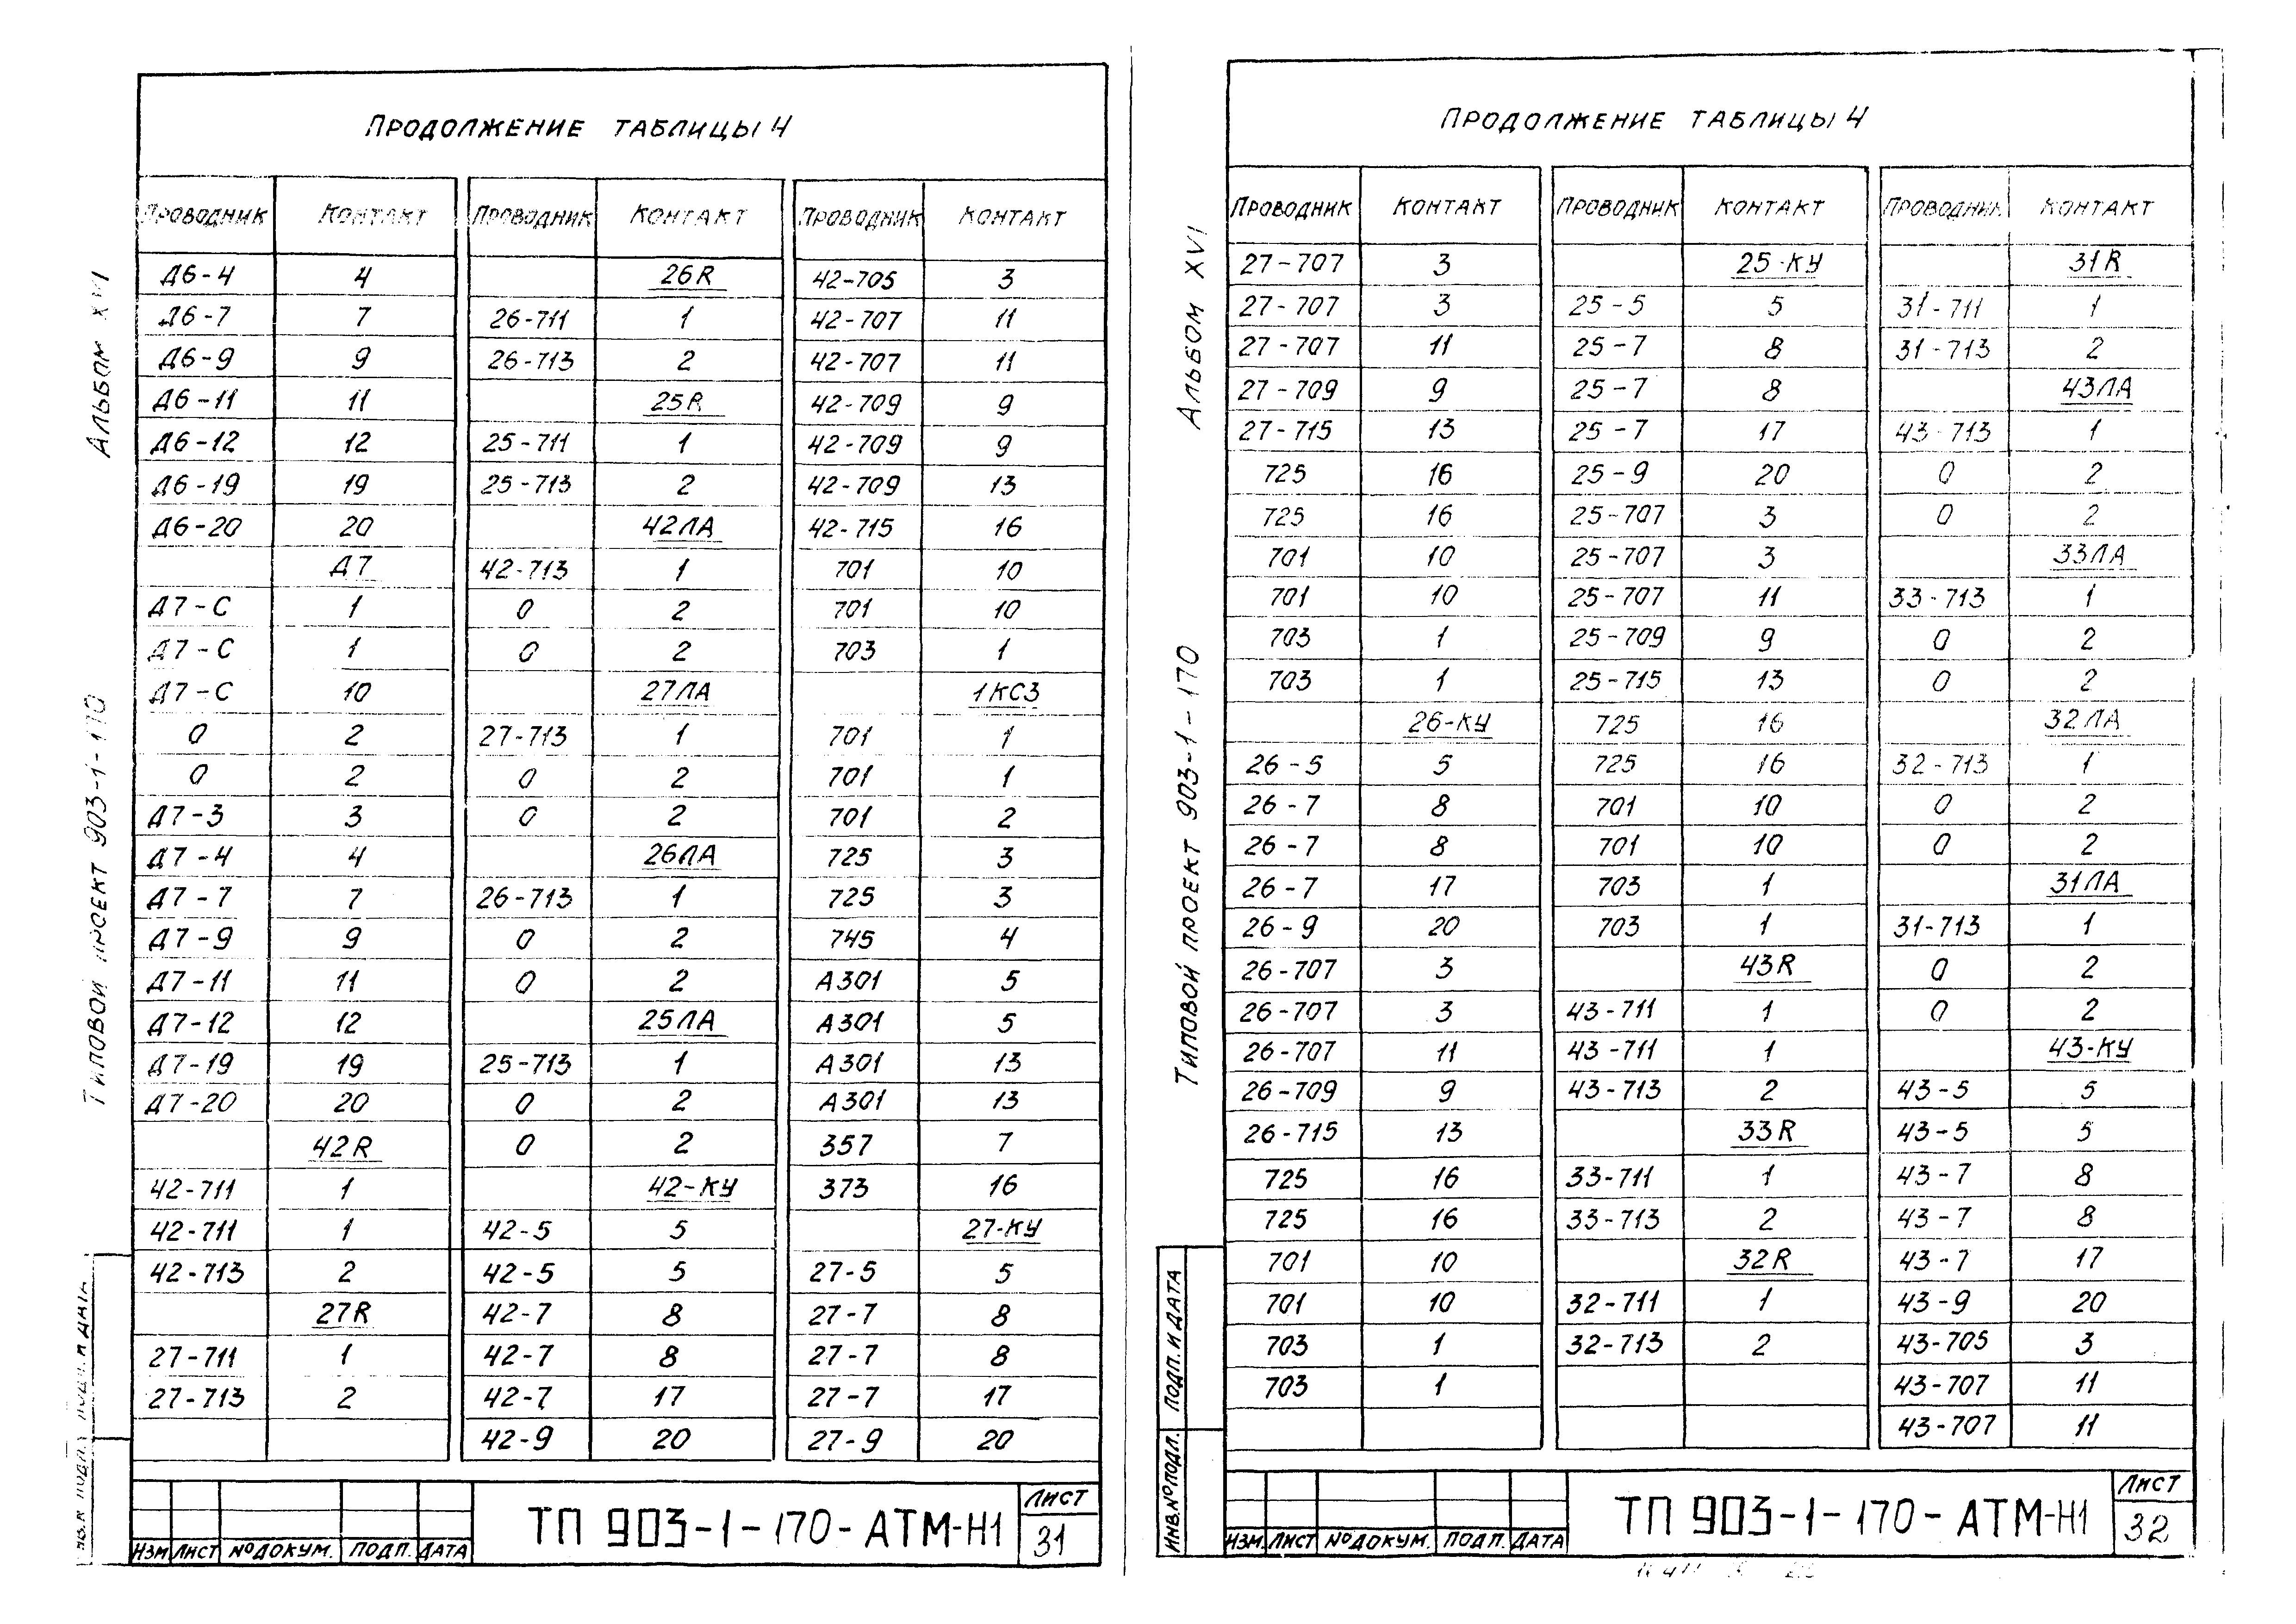 Продолжение таблицы 4
Проводник Контакт Проводник Контакт Проводник Контакт
Д6-4 4 26R 42-705 3
Д6-7 7 26-711 1 42-707 11
Д6-9 9 26-713 2 42-707 11
Д6-11 11 25R 42-709 9
Д6-12 12 25-711 1 42-709 9
Д6-19 19 25-713 2 42-709 13
Д6-20 20 42ЛА 42-715 16
Д7 42-713 1 701 10
Д7-С 1 0 2 701 10
Д7-С 1 0 2 703 1
Д7-С 10 27ЛА 1КСЗ
0 2 27-713 1 701 1
0 2 0 2 701 1
Д7-3 3 0 2 701 2
Д7-4 4 26ЛА 725 3
Д7-7 7 26-713 1 725 3
Д7-9 9 0 2 745 4
Д7-11 11 0 2 А301 5
Д7-12 12 25ЛА А301 5
Д7-19 19 25-713 1 А301 13
Д7-20 20 0 2 А301 13
42R 0 2 357 7
42-711 1 42-КУ 373 16
42-711 1 42-5 5 27-КУ
42-713 2 42-5 5 27-5 5
27R 42-7 8 27-7 8
27-711 1 42-7 8 27-7 8
27-713 2 42-7 17 27-7 17
42-9 20 27-9 20
Альбом XVI
Типовой проект 903-1-170
Изм Лист № докум. Подп. Дата
ТП 903-1-170-АТМ-Н1
Лист
31
Продолжение таблицы 4
Проводник Контакт Проводник Контакт Проводник Контакт
27-707 3 25-КУ 31R
27-707 3 25-5 5 31-711 1
27-707 11 25-7 8 31-713 2
27-709 9 25-7 8 43ЛА
27-715 13 25-7 17 43-713 1
725 16 25-9 20 0 2
725 16 25-707 3 0 2
701 10 25-707 3 33ЛА
701 10 25-707 11 33-713 1
703 1 25-709 9 0 2
703 1 25-715 13 0 2
26-КУ 725 16 32ЛА
26-5 5 725 16 32-713 1
26-7 8 701 10 0 2
26-7 8 701 10 0 2
26-7 17 703 1 31ЛА
26-9 20 703 1 31-713 1
26-707 3 43R 0 2
26-707 3 43-711 1 0 2
26-707 11 43-711 1 43-КУ
26-709 9 43-713 2 43-5 5
26-715 13 33R 43-5 5
725 16 33-711 1 43-7 8
725 16 33-713 2 43-7 8
701 10 32R 43-7 17
701 10 32-711 1 43-9 20
703 1 32-713 2 43-705 3
703 1 43-707 11
43-707 11
Альбом XVI
Типовой проект 903-1-170
Подп. и дата
Инв.№ подл.
Изм. Лист № докум. Подп. Дата
ТП 903-1-170-АТМ-Н1
Лист
32